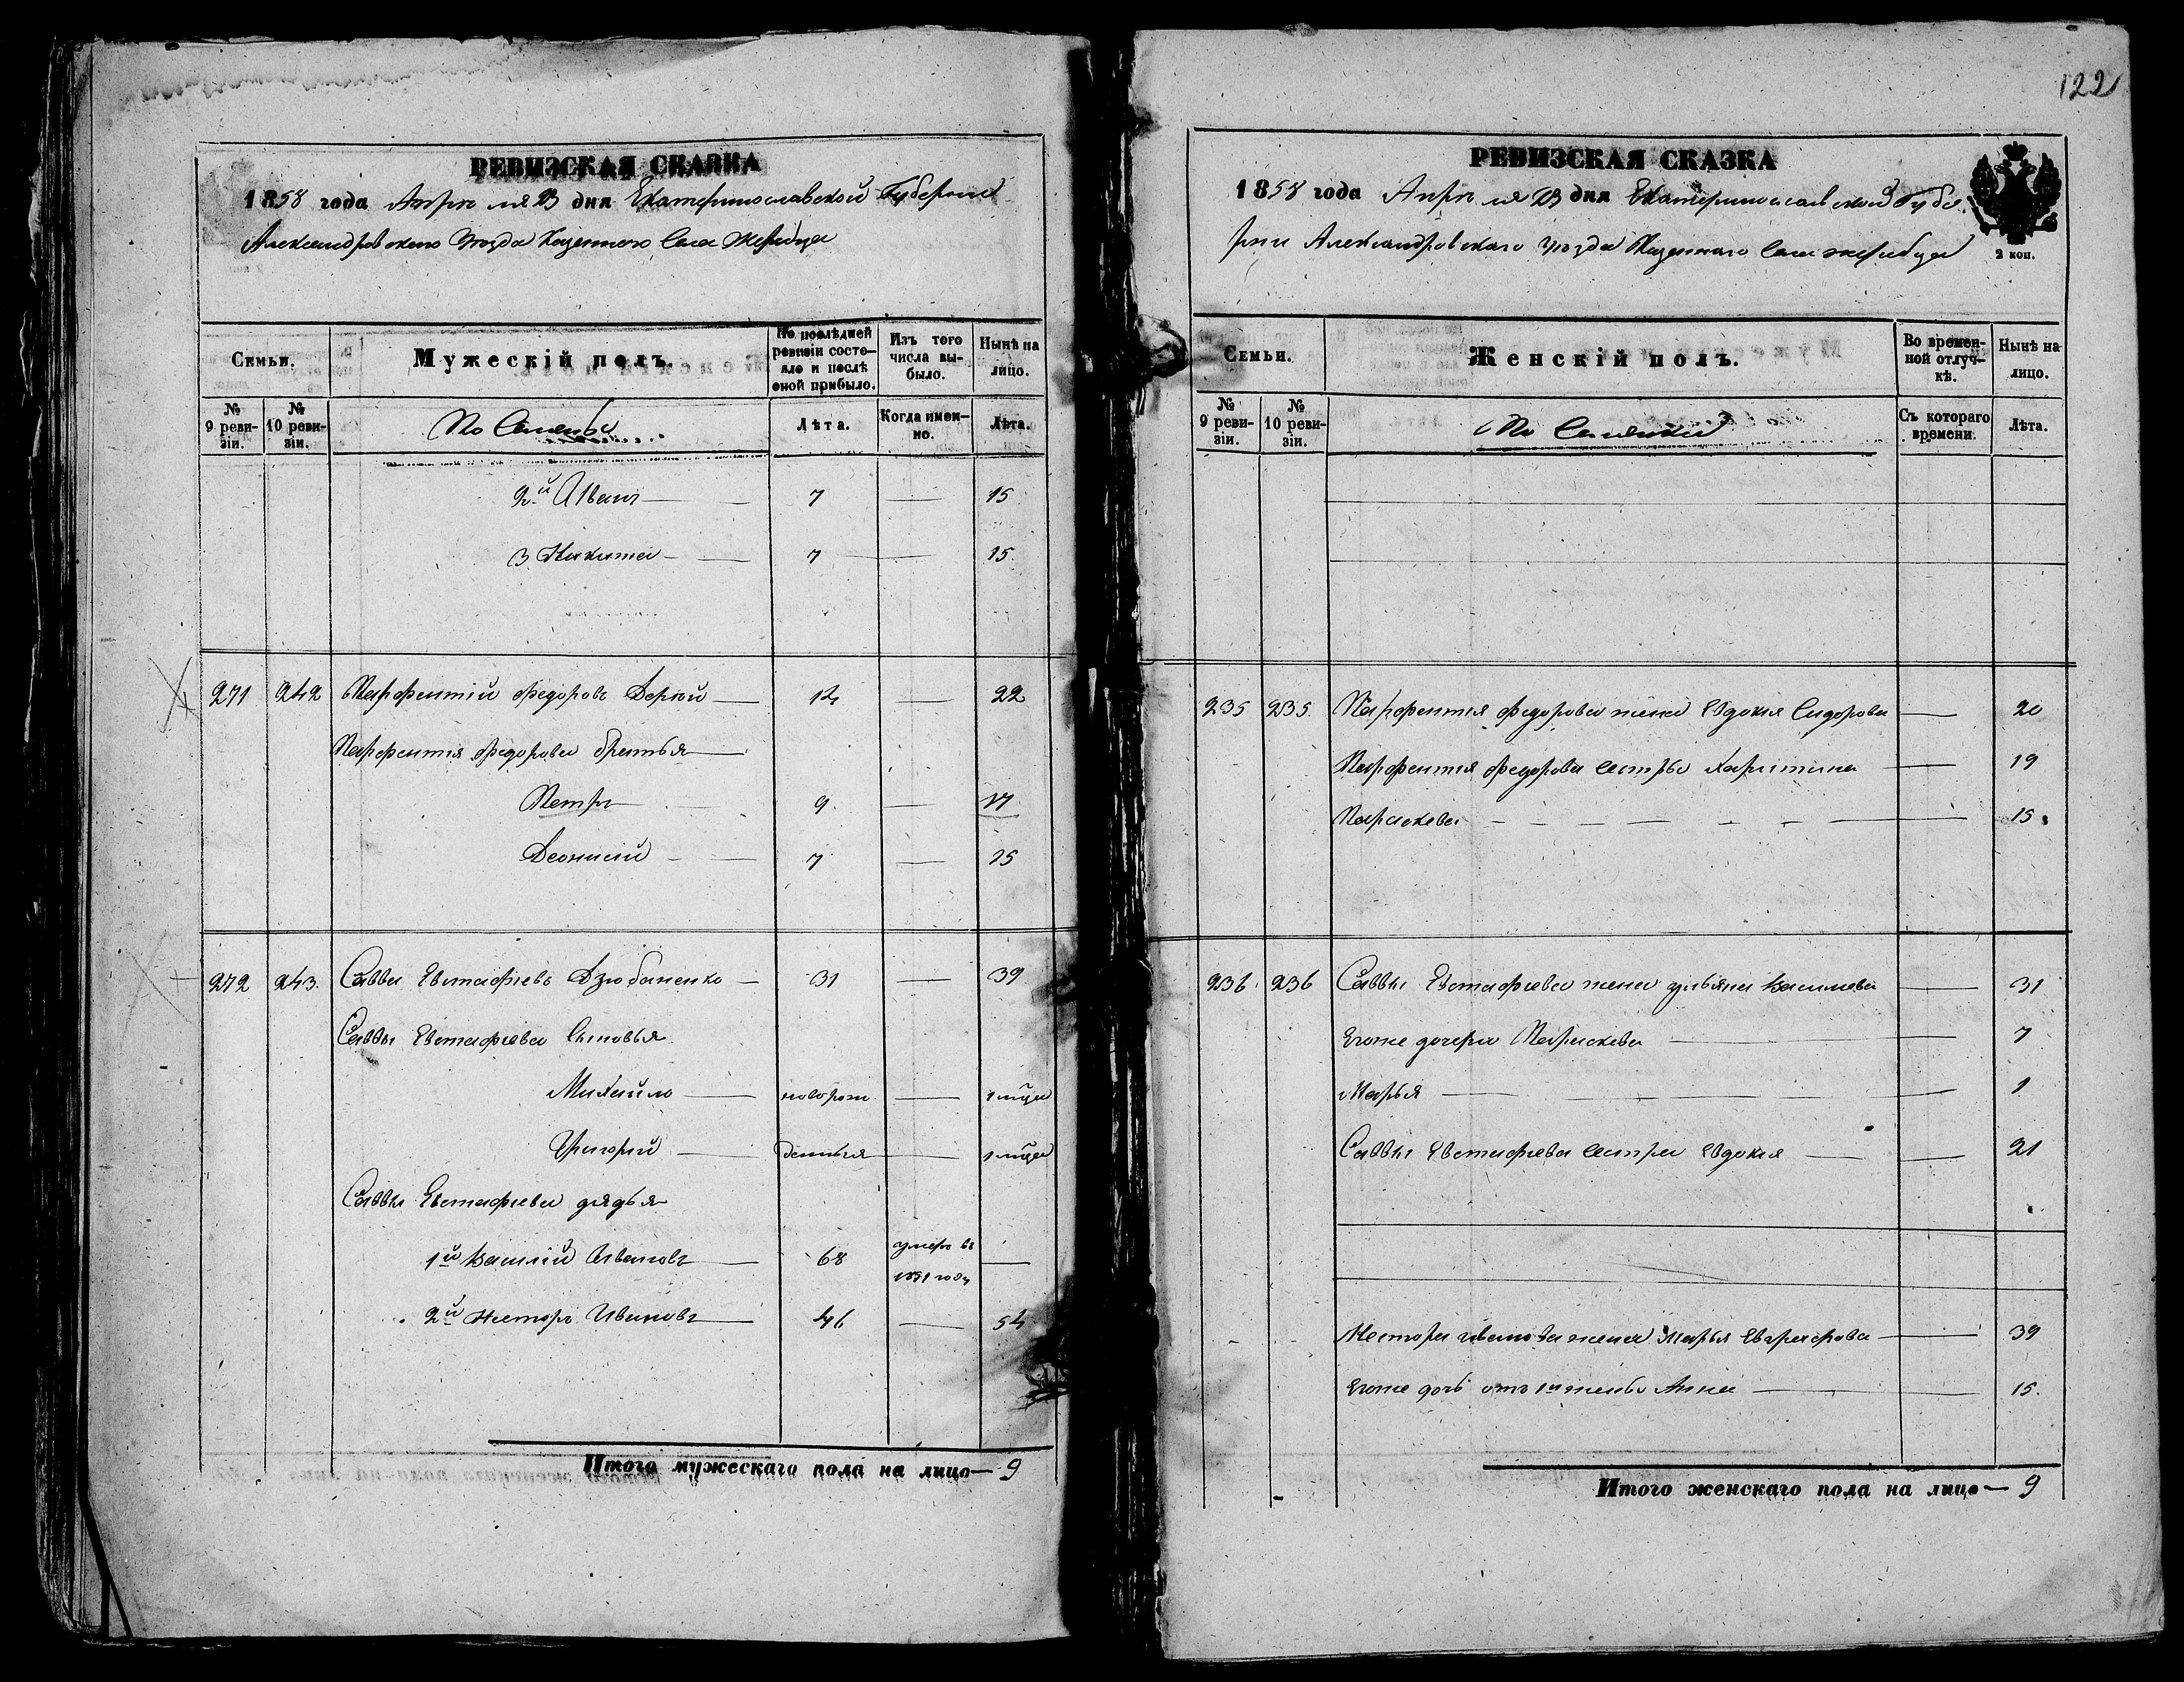 122
РЕВИЗСКАЯ СКАЗКА
1858 года Апреля 23 дня Екатеринославской Губернии
Александровскаго Уезда Казеннаго Села Жеребца
Семьи.
Мужескій полъ.
По послѣдней ревизіи состояло и послѣ оной прибыло.
Изъ того числа выбыло.
Нынѣ на лицо.
№ 9 ревизіи.
№ 10 ревизіи.
Лѣта.
Когда именно.
Лѣта.
2й Иванъ — 7 — 15
3 Никита — 7 — 15.
271 242 Парфентій Федоровъ Дергай — 14 — 22
Парфентія Федорова братья
Петръ — 9 — 17
Деонисій — 7 — 15
272 243. Савва Евстафіевъ Дзюбаненко — 31 — 39
Саввы Евстафіева Сыновья
Михайло — новорож. — 1 мѣца
Григорій — денныя — 1 мѣца
Саввы Евстафіева дядья
1й Василій Ивановъ — 68 умеръ въ 1851 году —
2й Нестеръ Ивановъ — 46 — 54
Итого мужескаго пола на лицо — 9
РЕВИЗСКАЯ СКАЗКА
1858 года Апреля 23 дня Екатеринославской Губе
рнии Александровскаго Уезда Казеннаго Села Жеребца
2 коп.
Семьи.
Женскій полъ.
Во временной отлучкѣ.
Нынѣ на лицо.
№ 9 ревизіи.
№ 10 ревизіи.
Съ котораго времени.
Лѣта.
235 235. Парфентія Федорова жена Евдокія Сидорова — 20
Парфентія Федорова Сестры Харитина — 19
Параскева — 15.
236 236 Саввы Евстафіева жена Ульяна Васильева — 31
Егоже дочери Параскева — 7
Марья — 1
Саввы Евстафіева Сестра Евдокія — 21
Нестера Иванова жена Марья Евграфова — 39
Егоже дочь отъ 1й жены Анна — 15.
Итого женскаго пола на лицо — 9